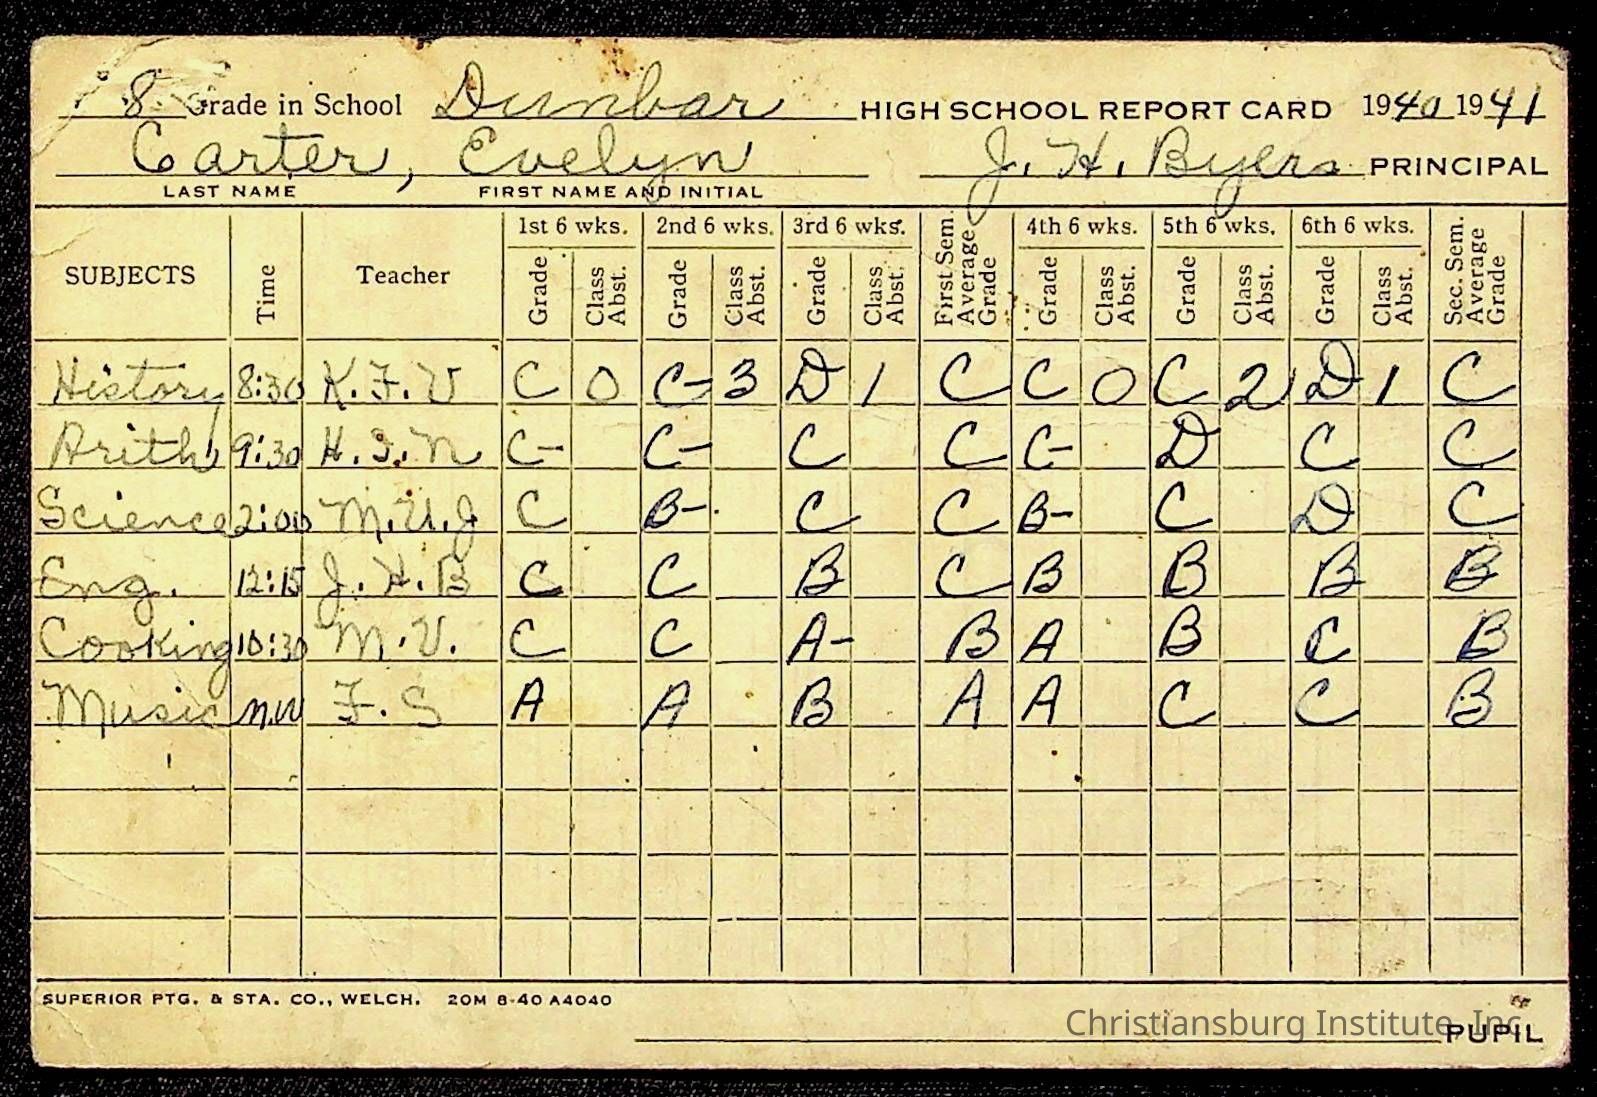 8 Grade in School Dunbar HIGH SCHOOL REPORT CARD 1940 1941
Carter, Evelyn J. H. Byers PRINCIPAL
LAST NAME FIRST NAME AND INITIAL
1st 6 wks. 2nd 6 wks. 3rd 6 wks. First Sem. Average Grade 4th 6 wks. 5th 6 wks. 6th 6 wks. Sec. Sem. Average Grade
SUBJECTS Time Teacher Grade Class Abst. Grade Class Abst. Grade Class Abst. Grade Class Abst. Grade Class Abst. Grade Class Abst.
History 8:30 K.F.V C 0 C- 3 D 1 C C 0 C 2 D 1 C
Arith 9:30 H.I.N C- C- C C C- D C C
Science 2:00 M.U.J C B- C C B- C D C
Eng. 12:15 J.H.B C C B C B B B B
Cooking 10:30 M.V. C C A- B A B C B
Music F.S A A B A A C C B
SUPERIOR PTG. & STA. CO., WELCH. 20M 8-40 A4040
Christiansburg Institute, Inc
PUPIL